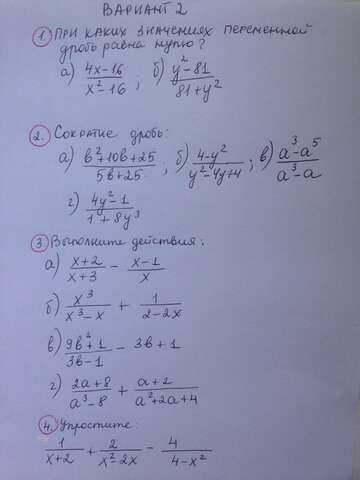 ВАРИАНТ 2
1. ПРИ КАКИХ ЗНАЧЕНИЯХ ПЕРЕМЕННОЙ
ДРОБЬ РАВНА НУЛЮ?
а) (4x-16)/(x²-16); б) (y²-81)/(81+y²)
2. Сократите дробь:
а) (b²+10b+25)/(5b+25); б) (4-y²)/(y²-4y+4); в) (a³-a⁵)/(a³-a)
г) (4y²-1)/(1+8y³)
3. Выполните действия:
а) (x+2)/(x+3) - (x-1)/x
б) x³/(x³-x) + 1/(2-2x)
в) (9b²+1)/(3b-1) - 3b+1
г) (2a+8)/(a³-8) + (a+2)/(a²+2a+4)
4. Упростите:
1/(x+2) + 2/(x²-2x) - 4/(4-x²)